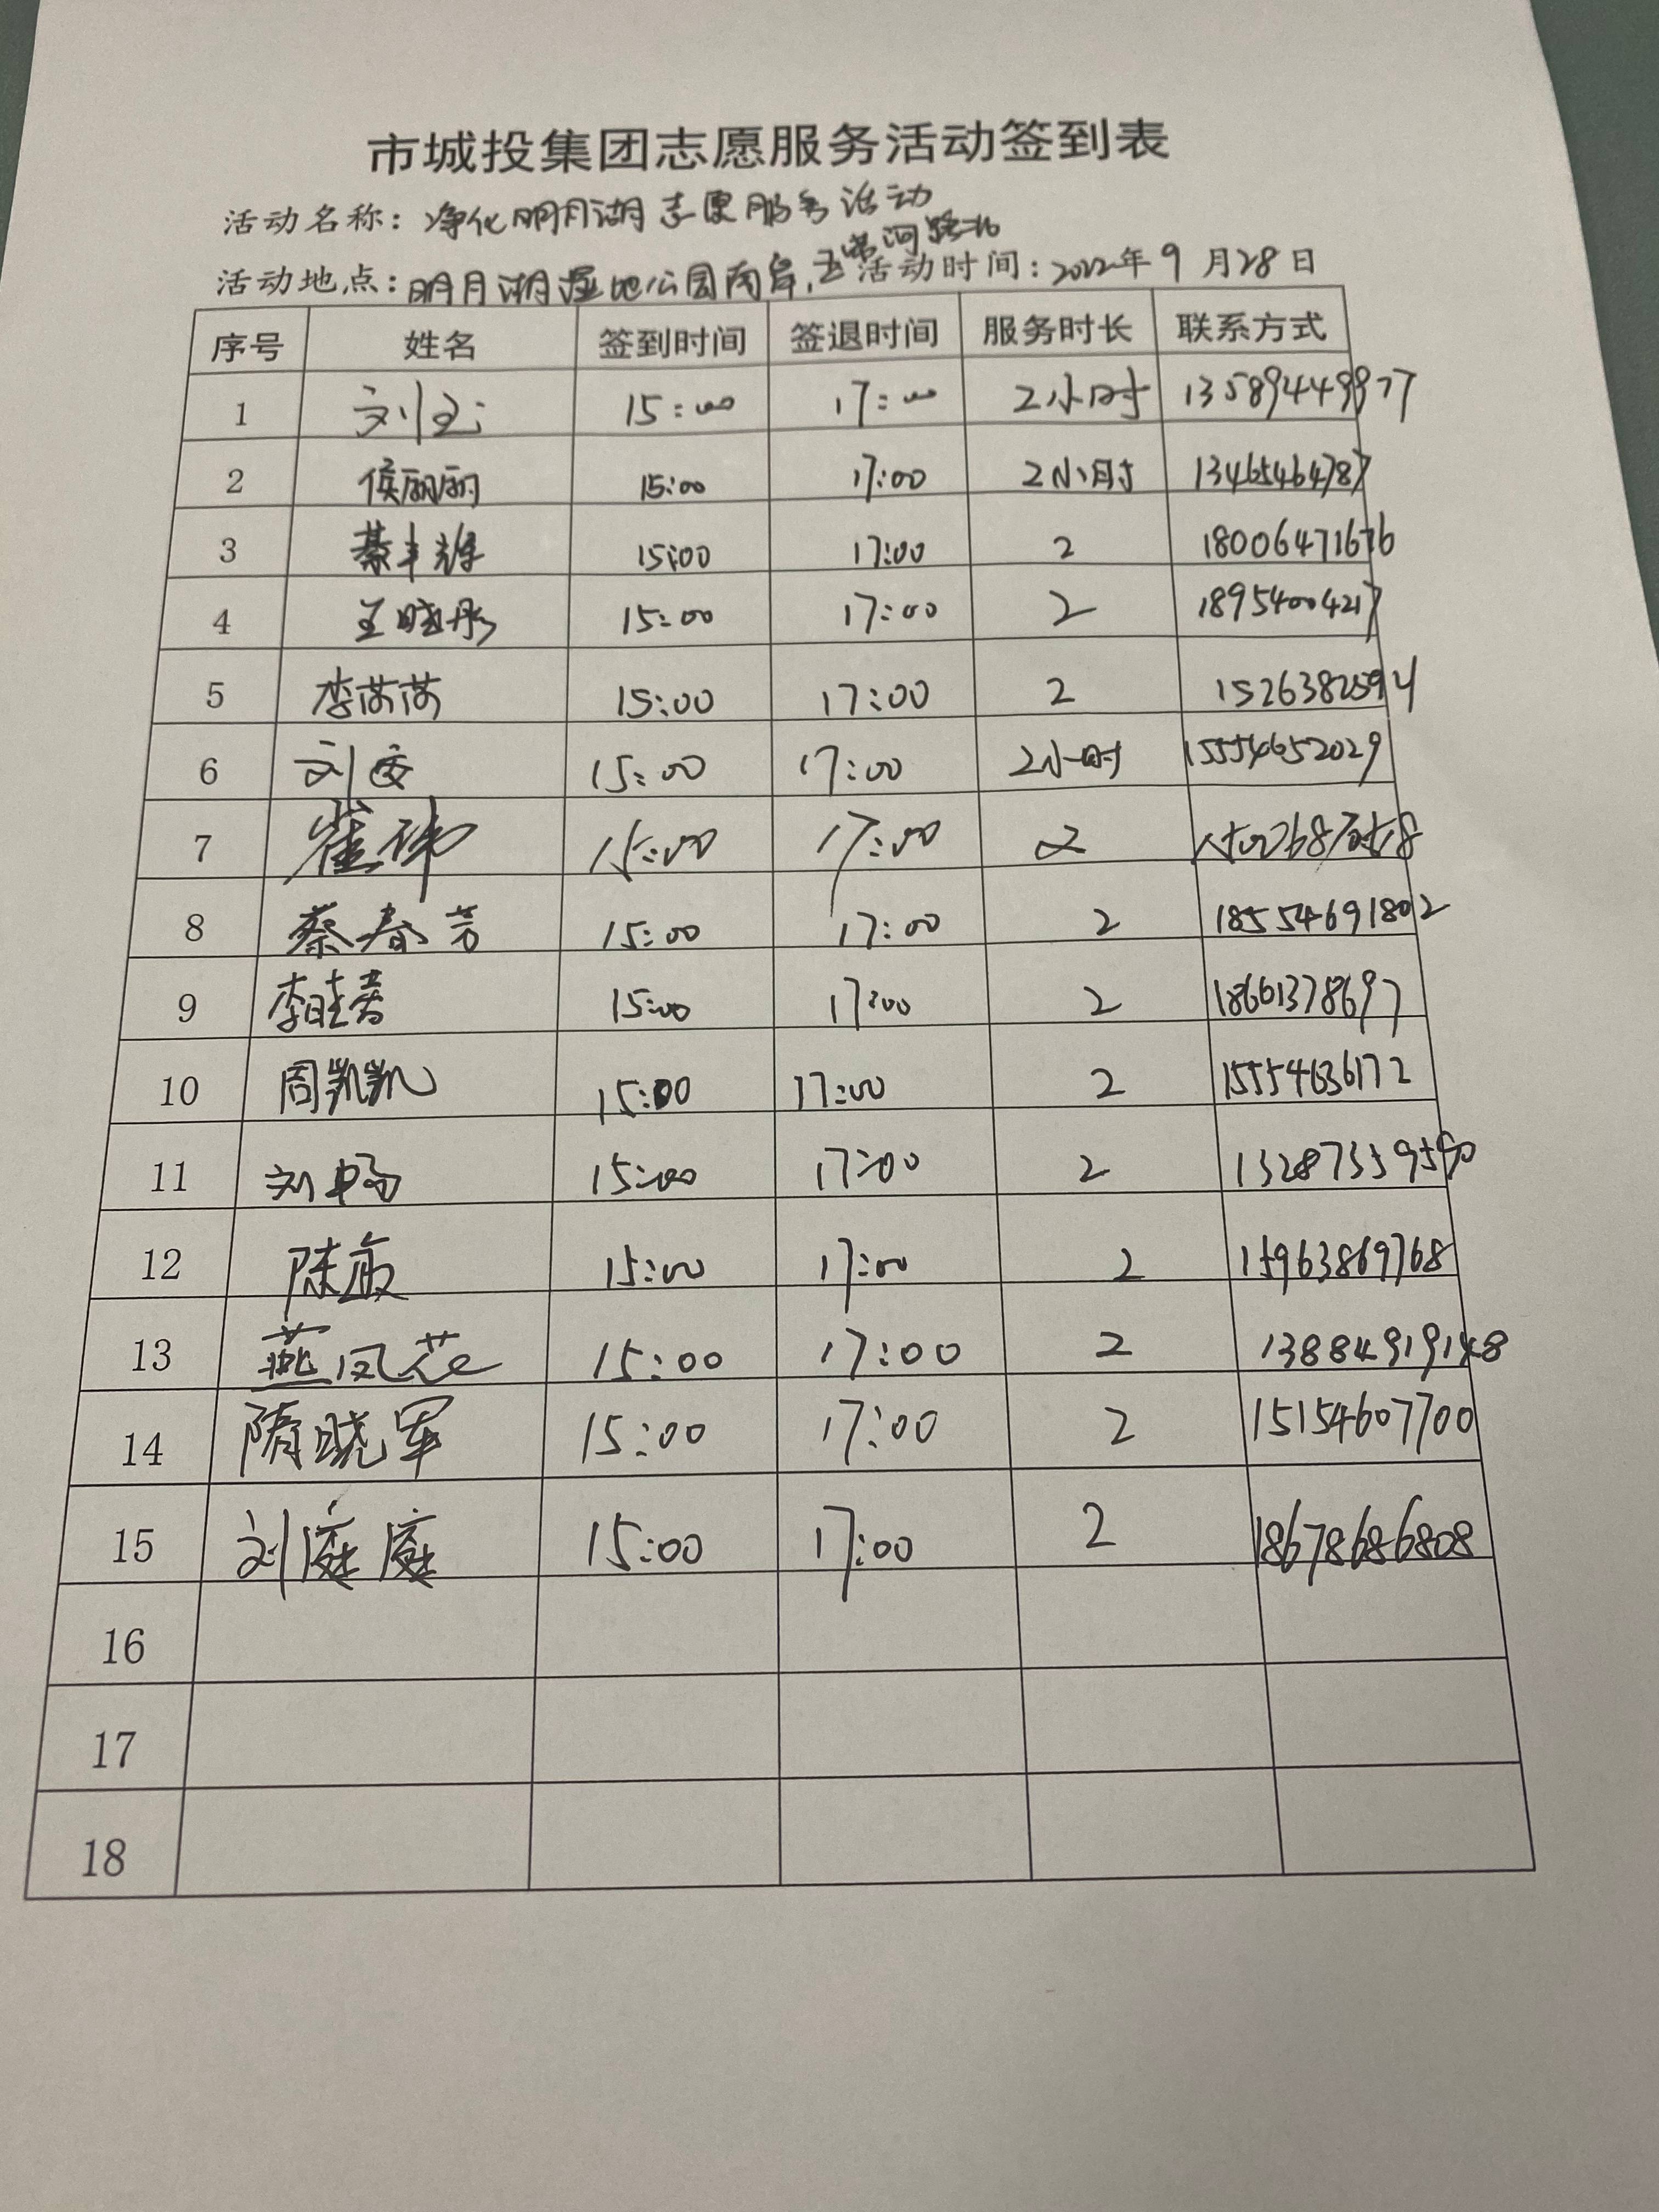 市城投集团志愿服务活动签到表
活动名称：净化明月湖志愿服务活动
活动地点：明月湖湿地公园南岸, 河路北 活动时间：2022年9月28日
序号 姓名 签到时间 签退时间 服务时长 联系方式
1 刘玉 15:00 17:00 2小时 13589449977
2 侯丽丽 15:00 17:00 2小时 13465464787
3 綦丰辉 15:00 17:00 2 18006471676
4 王晓彤 15:00 17:00 2 18954004217
5 李苘苘 15:00 17:00 2 15263825994
6 刘 15:00 17:00 2小时 15554652029
7 崔 15:00 17:00 2
8 蔡春芳 15:00 17:00 2 18554691802
9 李 15:00 17:00 2 18661378697
10 周凯凯 15:00 17:00 2 15554636172
11 刘畅 15:00 17:00 2 13287359590
12 陈敏 15:00 17:00 2 15963869768
13 燕凤花 15:00 17:00 2 13884919148
14 隋晓军 15:00 17:00 2 15154607700
15 刘庭庭 15:00 17:00 2 18678686808
16
17
18